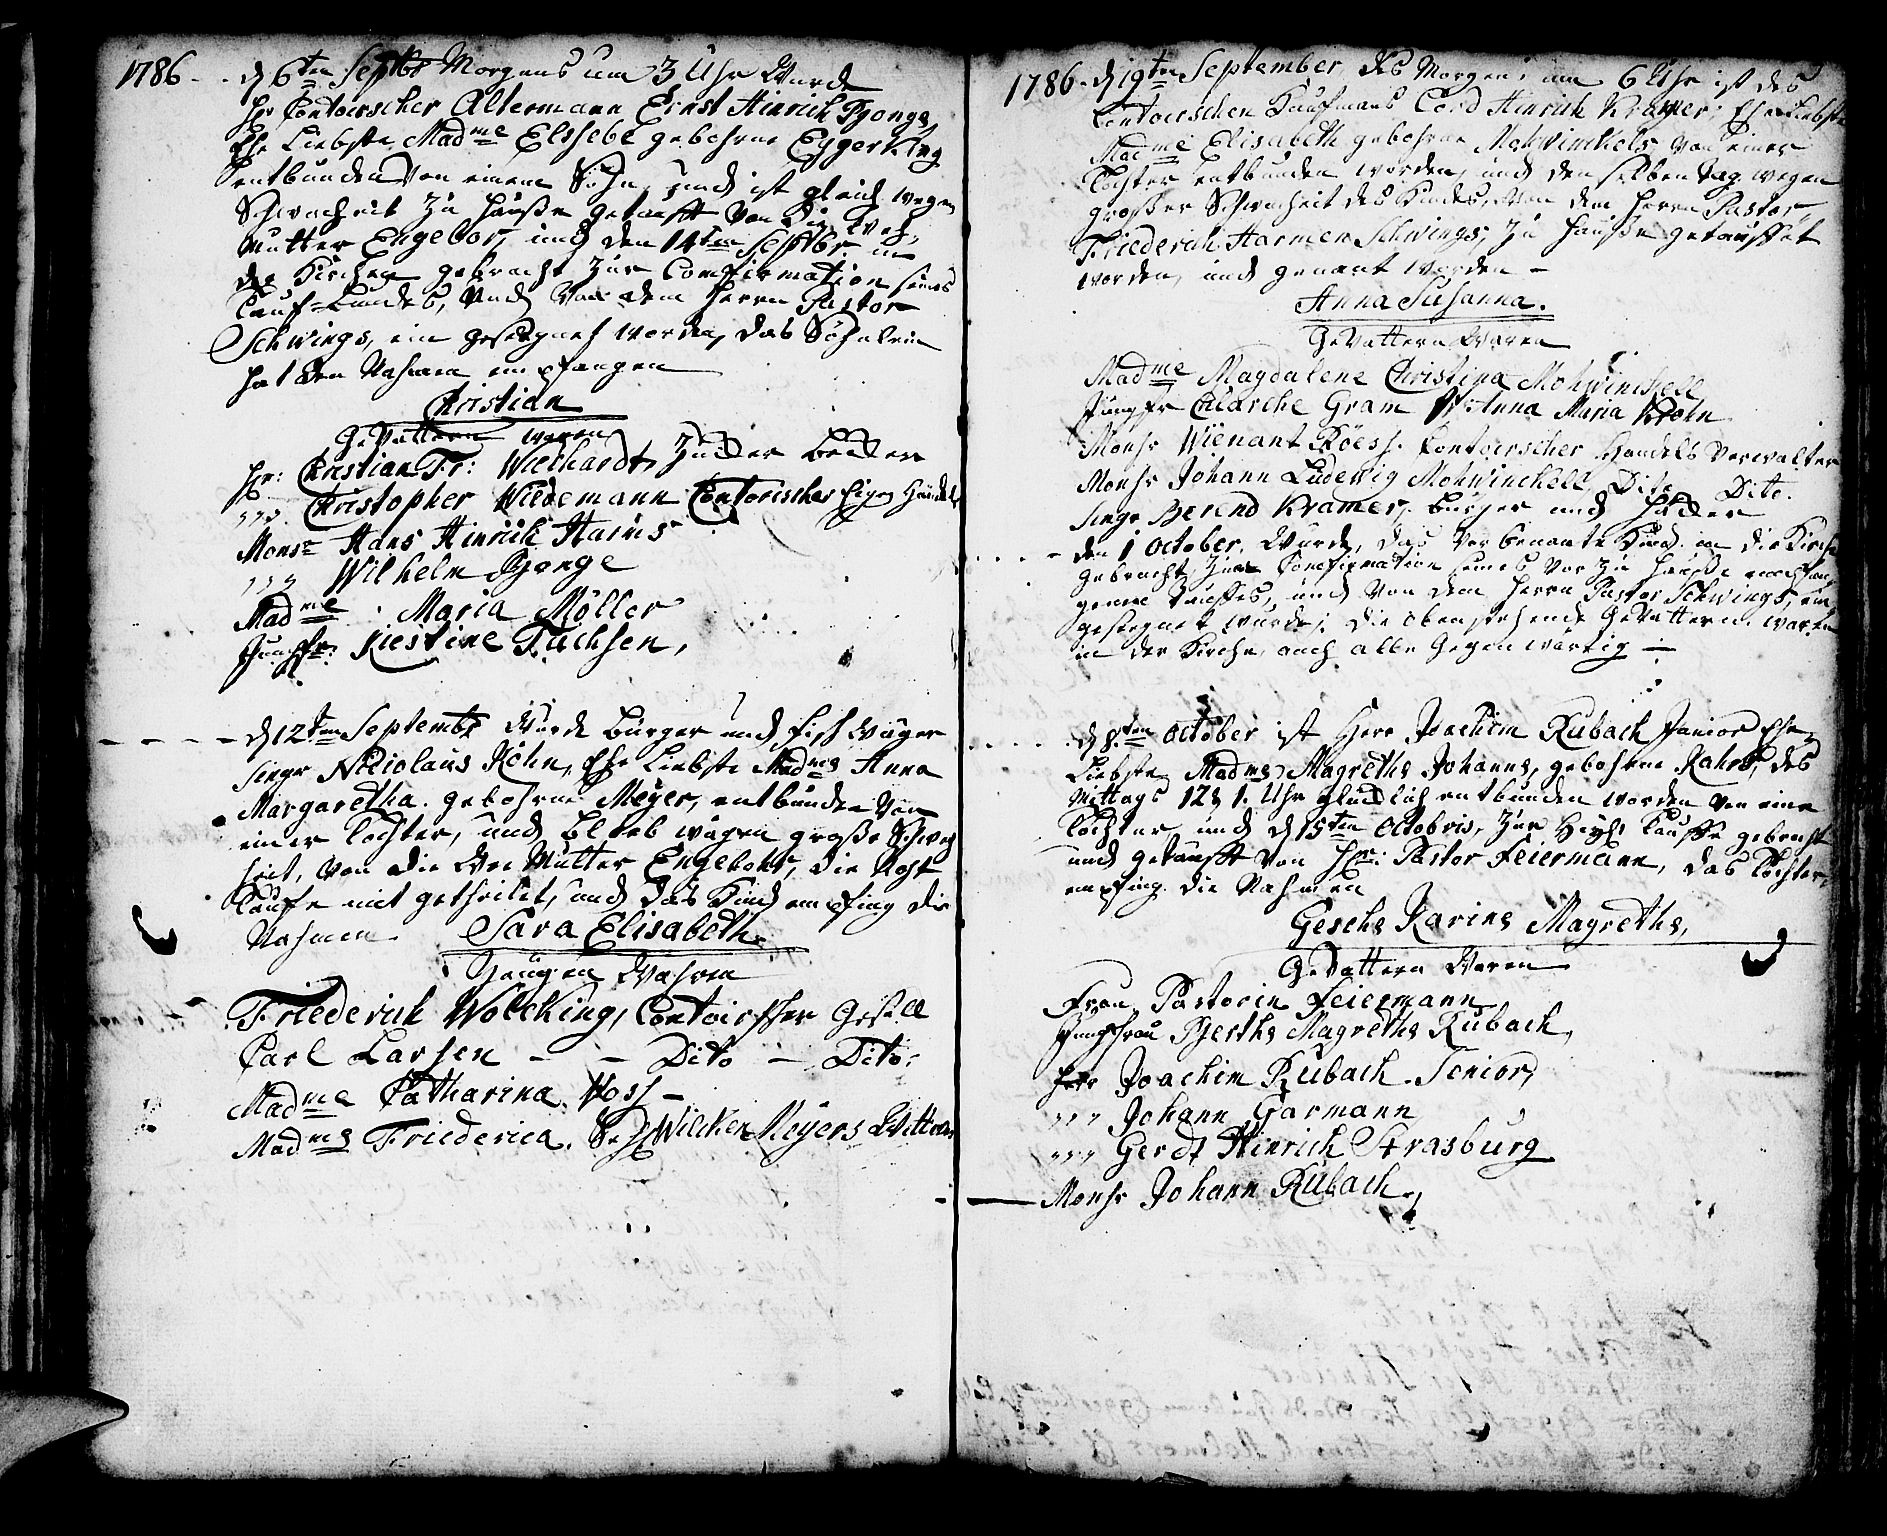 1786. d 6ten Septbr Morgens um 3 Uhr Wurde
Hr Contoirscher Altermann Ernst Hinrich Bjonge,
Ehe Liebste Madme Elssebe gebohrne Eggerking
entbunden Von einem Sohn, und ist gleich wegen
Schwacheit zu Hausse getaufft Von die Weh,
Mutter Engebor, und den 14ten Septbr in
die Kirchen gebracht zur Confirmation seines
Tauf-Bundes, und Von dem Herrn Pastor
Schwings, ein gesegnet worden, das Söhnlein
hat den Nahmen empfangen
Christian
Gevattern waren
Hr: Christian Fr: Wielhardt, Zucker Becker
,,,, Christopher Wiedemann Contorischer Eigen Handel
Monsr Hans Hinrich Harms
,,,, Wilhelm Bjonge
Madme Maria Möller
Jungfr. Kiestine Tuchsen,
d 12ten Septembr Wurde Bürger und Fisch Wäger
Singr Nicolaus Köhn, Ehe Liebste Madme Anna
Margaretha gebohrne Meyer, entbunden Von
einer Tochter, und blieb wägen grosse Schwach
heit, von die Wee Mutter Engebohr, die Noht
Taufe mit getheilet, und das Kind empfing die
Nahmen Sara Elisabeth.
Zeugen Wahren
Friederich Wolcking, Contoirscher Gesell
Carl Larsen - - Dito - Dito.
Madme Catharina Voss -
Madme Friederica. Sehl Wilcken Meyers Wittwe
1786. d 19ten September des Morgens um 6 Uhr ist des
Contoirschen Kaufmans Cord Hinrich Kramer, Ehe Liebste
Madme Elisabeth gebohrne Mohwinckels von einer
Tochter entbunden worden, und den selben Tag wegen
grosser Schwacheit des Kindes, Von dem Herrn Pastor
Friederich Harmen Schwings, zu Hausse getauffet
worden, und genant worden -
Anna Susanna.
Gevattern Waren
Madme Magdalene Christina Mohwinckell
Jungfr Calarche Gram Anna Maria Krohn
Monsr Wienant Röess. Contoirscher Handels Verwalter
Monsr Johann Ludewig Mohwinckell, Dito Dito.
Singr Berend Kramer, Bürger und Häcker
den 1 October. Wurde, das Vorbenante Kind in die Kirche
gebracht, zur Confirmation seines Vor zu Hausse empfan-
genen Tauffes, und Von dem Herrn Pastor Schwings, ein
gesegnet wurde; die obenstehende Gevattern waren
in der Kirche auch alle Gegenwärtig -
d 8ten October ist Herr Joachim Rubach Junior Ehe,
Liebste Madme Magrethe Johanne, gebohrne Rahrs, des
Mittags 12 & 1. Uhr glücklich entbunden worden von eine
Tochter und d 15ten Octobris, zur Heyl Tauffe gebracht
und getaufft von Hrn: Pastor Feiermann, das Tochter,
empfing die Nahmen
Gesche Karine Magrethe,
Gevattern Waren
Frau Pastorin Feiermann
Jungfrau Bjerthe Magrethe Rubach,
Herr Joachim Rubach. Senior,
,,,, Johann Garmann
,,,, Gerdt Hinrich Strasburg
Monsr Johann Rubach,